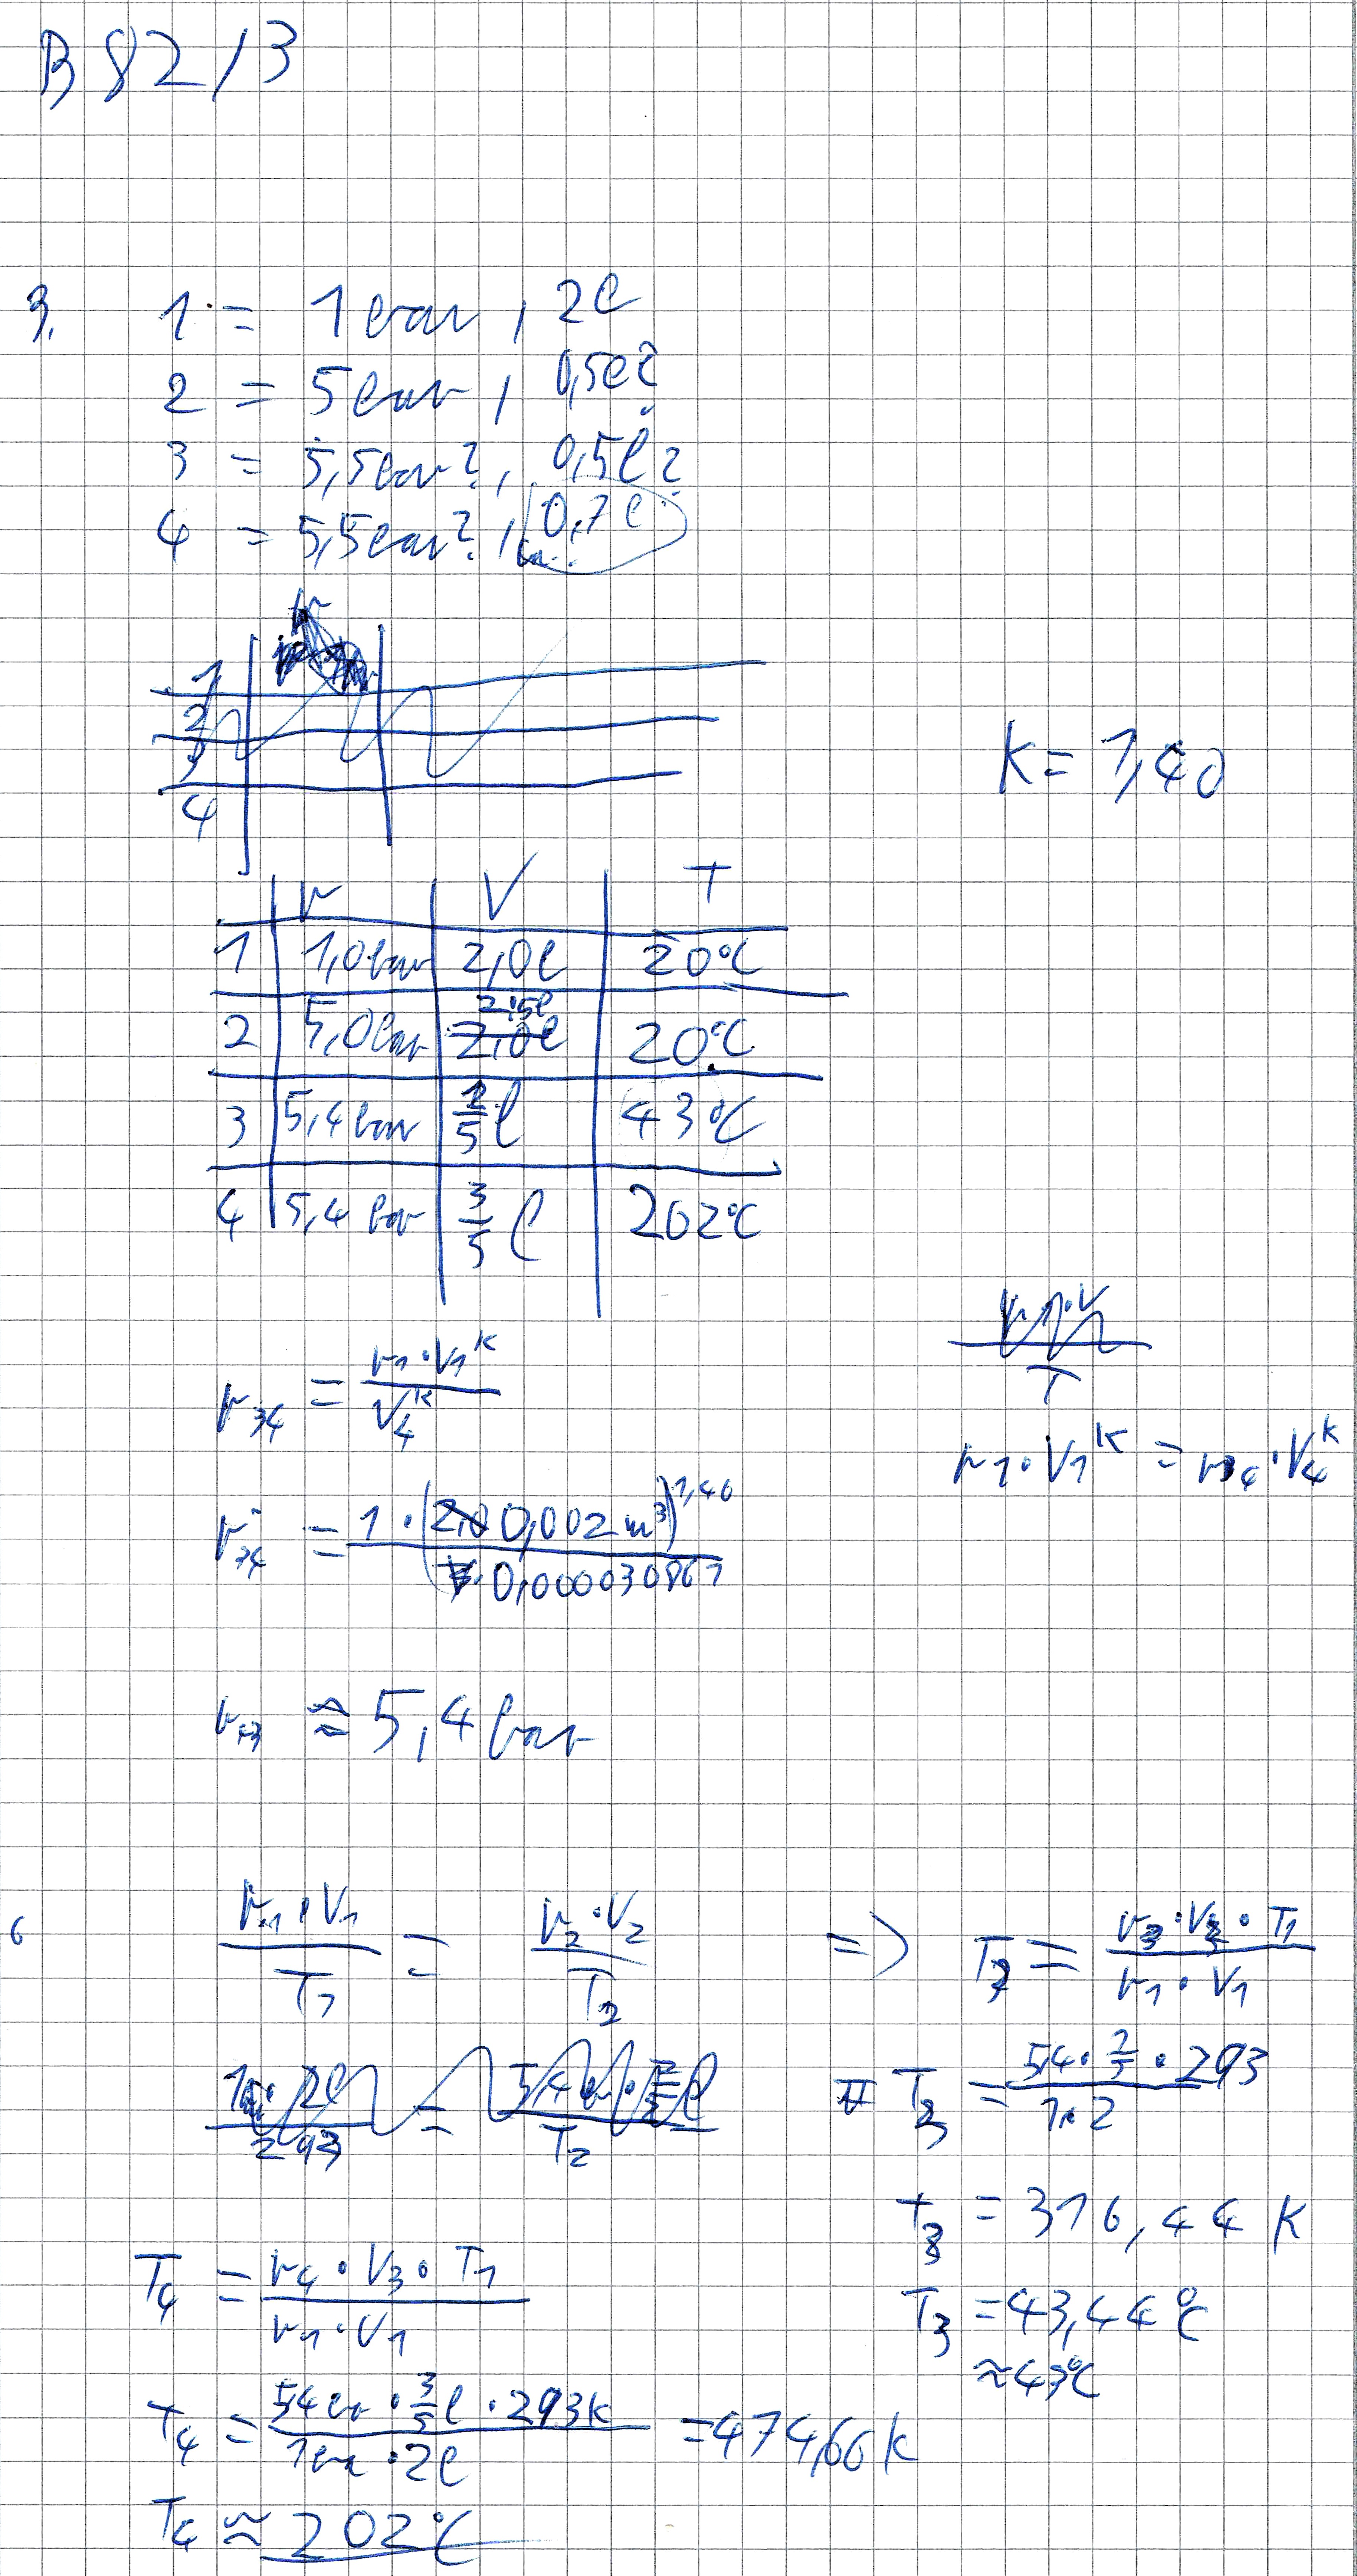 B 82/3
3. 1 = 1 bar, 2l
2 = 5 bar, 0,5l?
3 = 5,5 bar?, 0,5l?
4 = 5,5 bar?, 0,7l
1
2
3
4
K = 1,40
p V T
1 1,0 bar 2,0l 20°C
2 5,0 bar 20°C
3 5,4 bar 2/5 l 43°C
4 5,4 bar 3/5 l 202°C
p34 = p1·V1^K / V4^K
p1·V1^K = p34·V4^K
p34 = 1·(0,002 m³)^1,40 / 0,000030861
≈ 5,4 bar
p1·V1 / T1 = p2·V2 / T2 => T3 = p3·V3·T1 / p1·V1
T3 = 5,4·2/5·293 / 1·2
T3 = 316,44 K
T4 = p4·V3·T1 / p1·V1
T3 = 43,44°C
≈ 43°C
T4 = 5,4 bar·3/5 l·293K / 1 bar·2l = 474,66 K
T4 ≈ 202°C